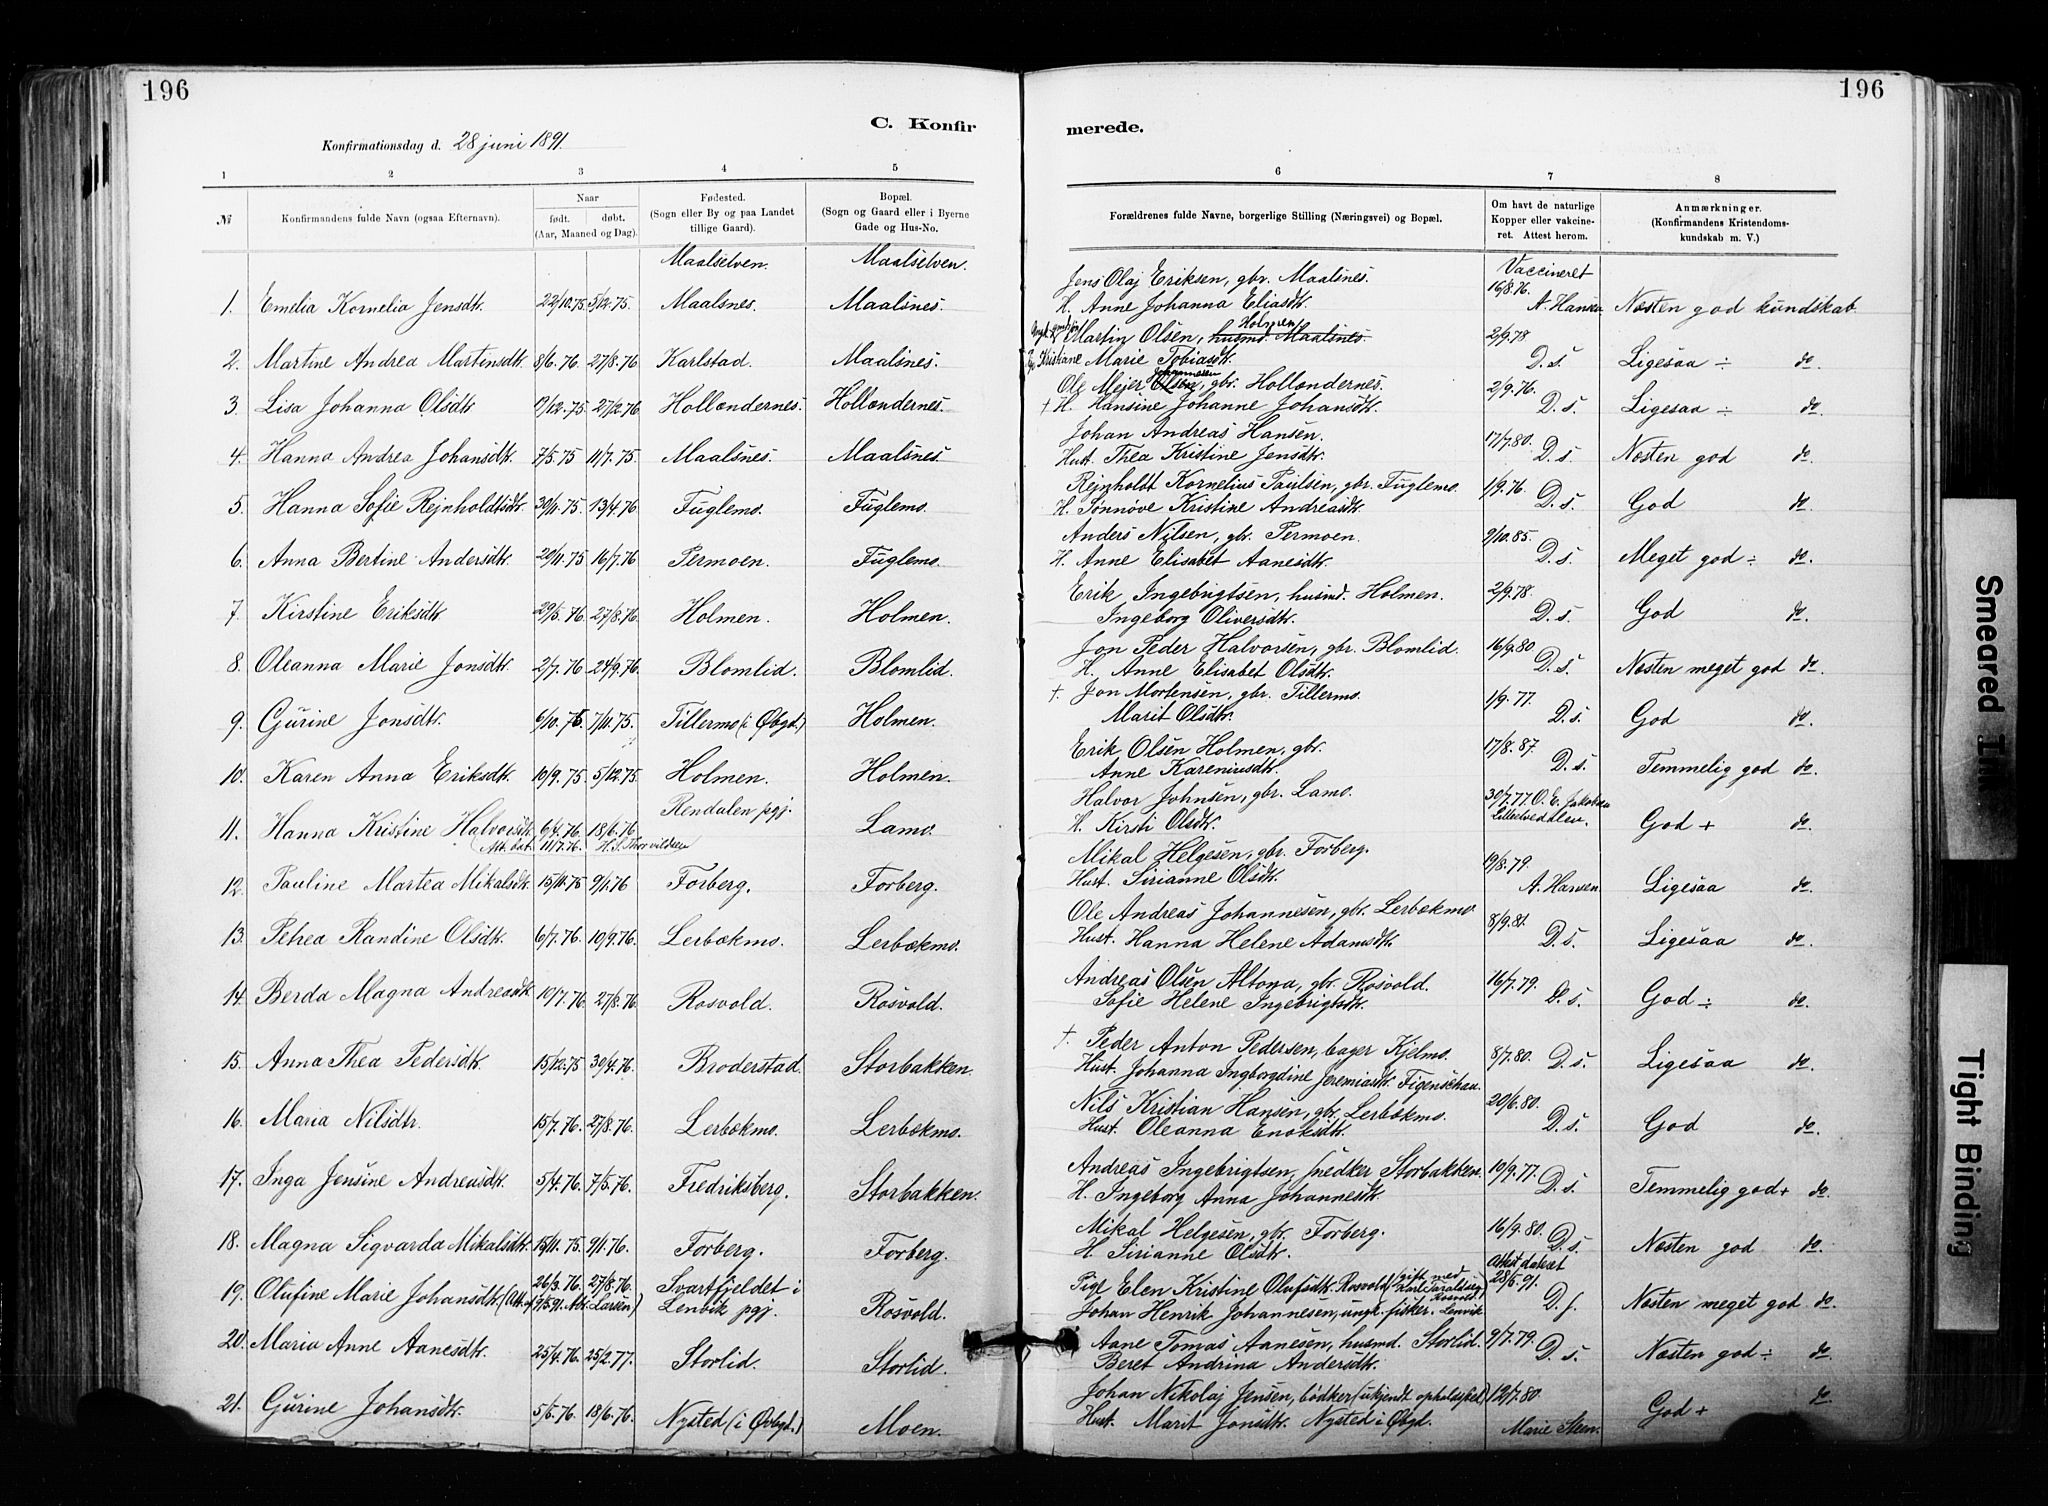 196
196
C. Konfir
merede.
Konfirmationsdag d. 28 juni 1891.
1 2 3 4 5 6 7 8
№ Konfirmandens fulde Navn (ogsaa Efternavn). Naar født. døbt. (Aar, Maaned og Dag). Fødested. (Sogn eller By og paa Landet tillige Gaard). Bopæl. (Sogn og Gaard eller i Byerne Gade og Hus-No. Forældrenes fulde Navne, borgerlige Stilling (Næringsvei) og Bopæl. Om havt de naturlige Kopper eller vakcineret. Attest herom. Anmærkninger. (Konfirmandens Kristendomskundskab m. V.)
Maalselven. Maalselven. Jens Olaj Eriksen, gbr. Maalsnes. Vaccineret
1. Emelia Kornelia Jensdtr. 22/10.75 5/12.75. Maalsnes. Maalsnes. H. Anne Johanna Eliasdtr. 16/8.76. A. Hansen Næsten god kundskab.
Martin Olsen, husmd. Maalsnes. Holmen
2. Martine Andrea Martinsdtr. 8/6.76. 27/8.76. Karlstad. Maalsnes. Kristiane Marie Tobiasdtr. 2/9.78 D. s. Ligesaa ÷ do
Ole Mejer Olsen, gbr. Hollændernes. Johannesen
3. Lisa Johanna Olsdtr. 19/12.75. 27/2.76 Hollændernes. Hollændernes. † H. Hansine Johanne Johansdtr. 2/9.76. D. s. Ligesaa ÷ do.
Johan Andreas Hansen.
4. Hanna Andrea Johansdtr. 7/5.75 11/7.75. Maalsnes. Maalsnes. Hust. Thea Kristine Jensdtr. 17/7.80. D. s. Næsten god do.
Rejnholdt Kornelius Paulsen, gbr. Fuglemo.
5. Hanna Sofie Rejnholdtsdtr. 30/11.75. 13/4.76 Fuglemo. Fuglemo. H. Sønnøve Kristine Andreasdtr. 1/9.76. D. s. God do.
Anders Nilsen, gbr. Permoen.
6. Anna Bertine Andersdtr. 20/11.75 16/7.76 Permoen. Fuglemo. H. Anne Elisabet Aanesdtr. 9/10.85. D. s. Meget god ÷ do.
Erik Ingebrigtsen, husmd. Holmen.
7. Kirstine Eriksdtr. 29/5.76. 27/8.76. Holmen. Holmen. Ingeborg Oliversdtr. 2/9.78. D. s. God do.
Jon Peder Halvorsen, gbr. Blomlid.
8. Oleanna Marie Jonsdtr. 2/7.76 24/9.76. Blomlid. Blomlid. H. Anne Elisabet Olsdtr. 16/9.80 D. s. Næsten meget god do.
† Jon Mortensen, gbr. Tillermo.
9. Gurine Jonsdtr. 6/10.75 7/11.75. Tillermo (i Øbgd.) Holmen. Marit Olsdtr. 1/9.77. D. s. God do.
Erik Olsen Holmen, gbr.
10. Karen Anna Eriksdtr. 10/9.75 5/12.75. Holmen. Holmen. Anne Kareniusdtr. 17/8.87. D. s. Temmelig god do.
Rendalen pgj. Halvor Johnsen, gbr. Lamo.
11. Hanna Kristine Halvorsdtr. 6/4.76 18/6.76 Lamo. H. Kirsti Olsdtr. 30/7.77. O. E. Jakobsen God + do.
(Att. dat. 11/7.76. H. S. Thorvildsen
Mikal Helgesen, gbr. Forberg.
12. Pauline Martea Mikalsdtr. 15/11.75 9/1.76 Forberg. Forberg. Hust. Sirianne Olsdtr. 19/8.79. A. Hansen. Ligesaa do.
Ole Andreas Johannesen, gbr. Lerbækmo
13. Petrea Randine Olsdtr. 6/7.76. 10/9.76. Lerbækmo. Lerbækmo. Hust. Hanna Helene Adamsdtr. 8/9.81. D. s. Ligesaa do.
Andreas Olsen Altona, gbr. Rosvold.
14. Berda Magna Andreasdtr. 10/7.76. 27/8.76. Rosvold. Rosvold. Sofie Helene Ingebrigtsdtr. 16/7.79. D. s. God ÷ do.
† Peder Anton Pedersen, bager Kjelmo.
15. Anna Thea Pedersdtr. 15/12.75 30/4.76. Broderstad. Storbakken. Hust. Johanna Ingborgdine Jeremiasdtr. Figenschau. 8/7.80. D. s. Ligesaa do.
Nils Kristian Hansen, gbr. Lerbækmo.
16. Maria Nilsdtr. 15/7.76. 27/8.76. Lerbækmo. Lerbækmo. Hust. Oleanna Enoksdtr. 20/6.80. D. s. God do.
Andreas Ingebrigtsen, snedker Storbakken.
17. Inga Jensine Andreasdtr. 5/4.76. 7/5.76. Fredriksberg. Storbakken. H. Ingeborg Anna Johannesdtr. 10/9.77. D. s. Temmelig god + do.
Mikal Helgesen, gbr. Forberg.
18. Magna Sigvarda Mikalsdtr. 15/11.75. 9/1.76. Forberg. Forberg. H. Sirianne Olsdtr. 16/9.80. D. s. Næsten god do.
Pige Elen Kristine Olufsdtr. Rosvold (gift med Karl Rosvold) Attest dateret
19. Olufine Marie Johansdtr. 26/3.76. 27/8.76. Svartfjeldet i Lenvik pgj. Rosvold. Johan Henrik Johannesen, ungk. fisker. Lenvik 28/5.91. D. s. Næsten meget god do.
Aane Tomas Aanesen, husmd. Storlid.
20. Maria Anne Aanesdtr. 25/4.76. 25/2.77. Storlid. Storlid. Beret Andrina Andersdtr. 9/7.79. D. s. Næsten god ÷ do
Johan Nikolaj Jensen, bødker (ukjendt opholdssted)
21. Gurine Johansdtr. 5/5.76. 18/6.76. Nysted (i Øvbgd.) Moen. Hust. Marit Jonsdtr. Nysted i Øbgd. 12/7.80. Marie Steen. God + do
Smeared Ink
Tight Binding